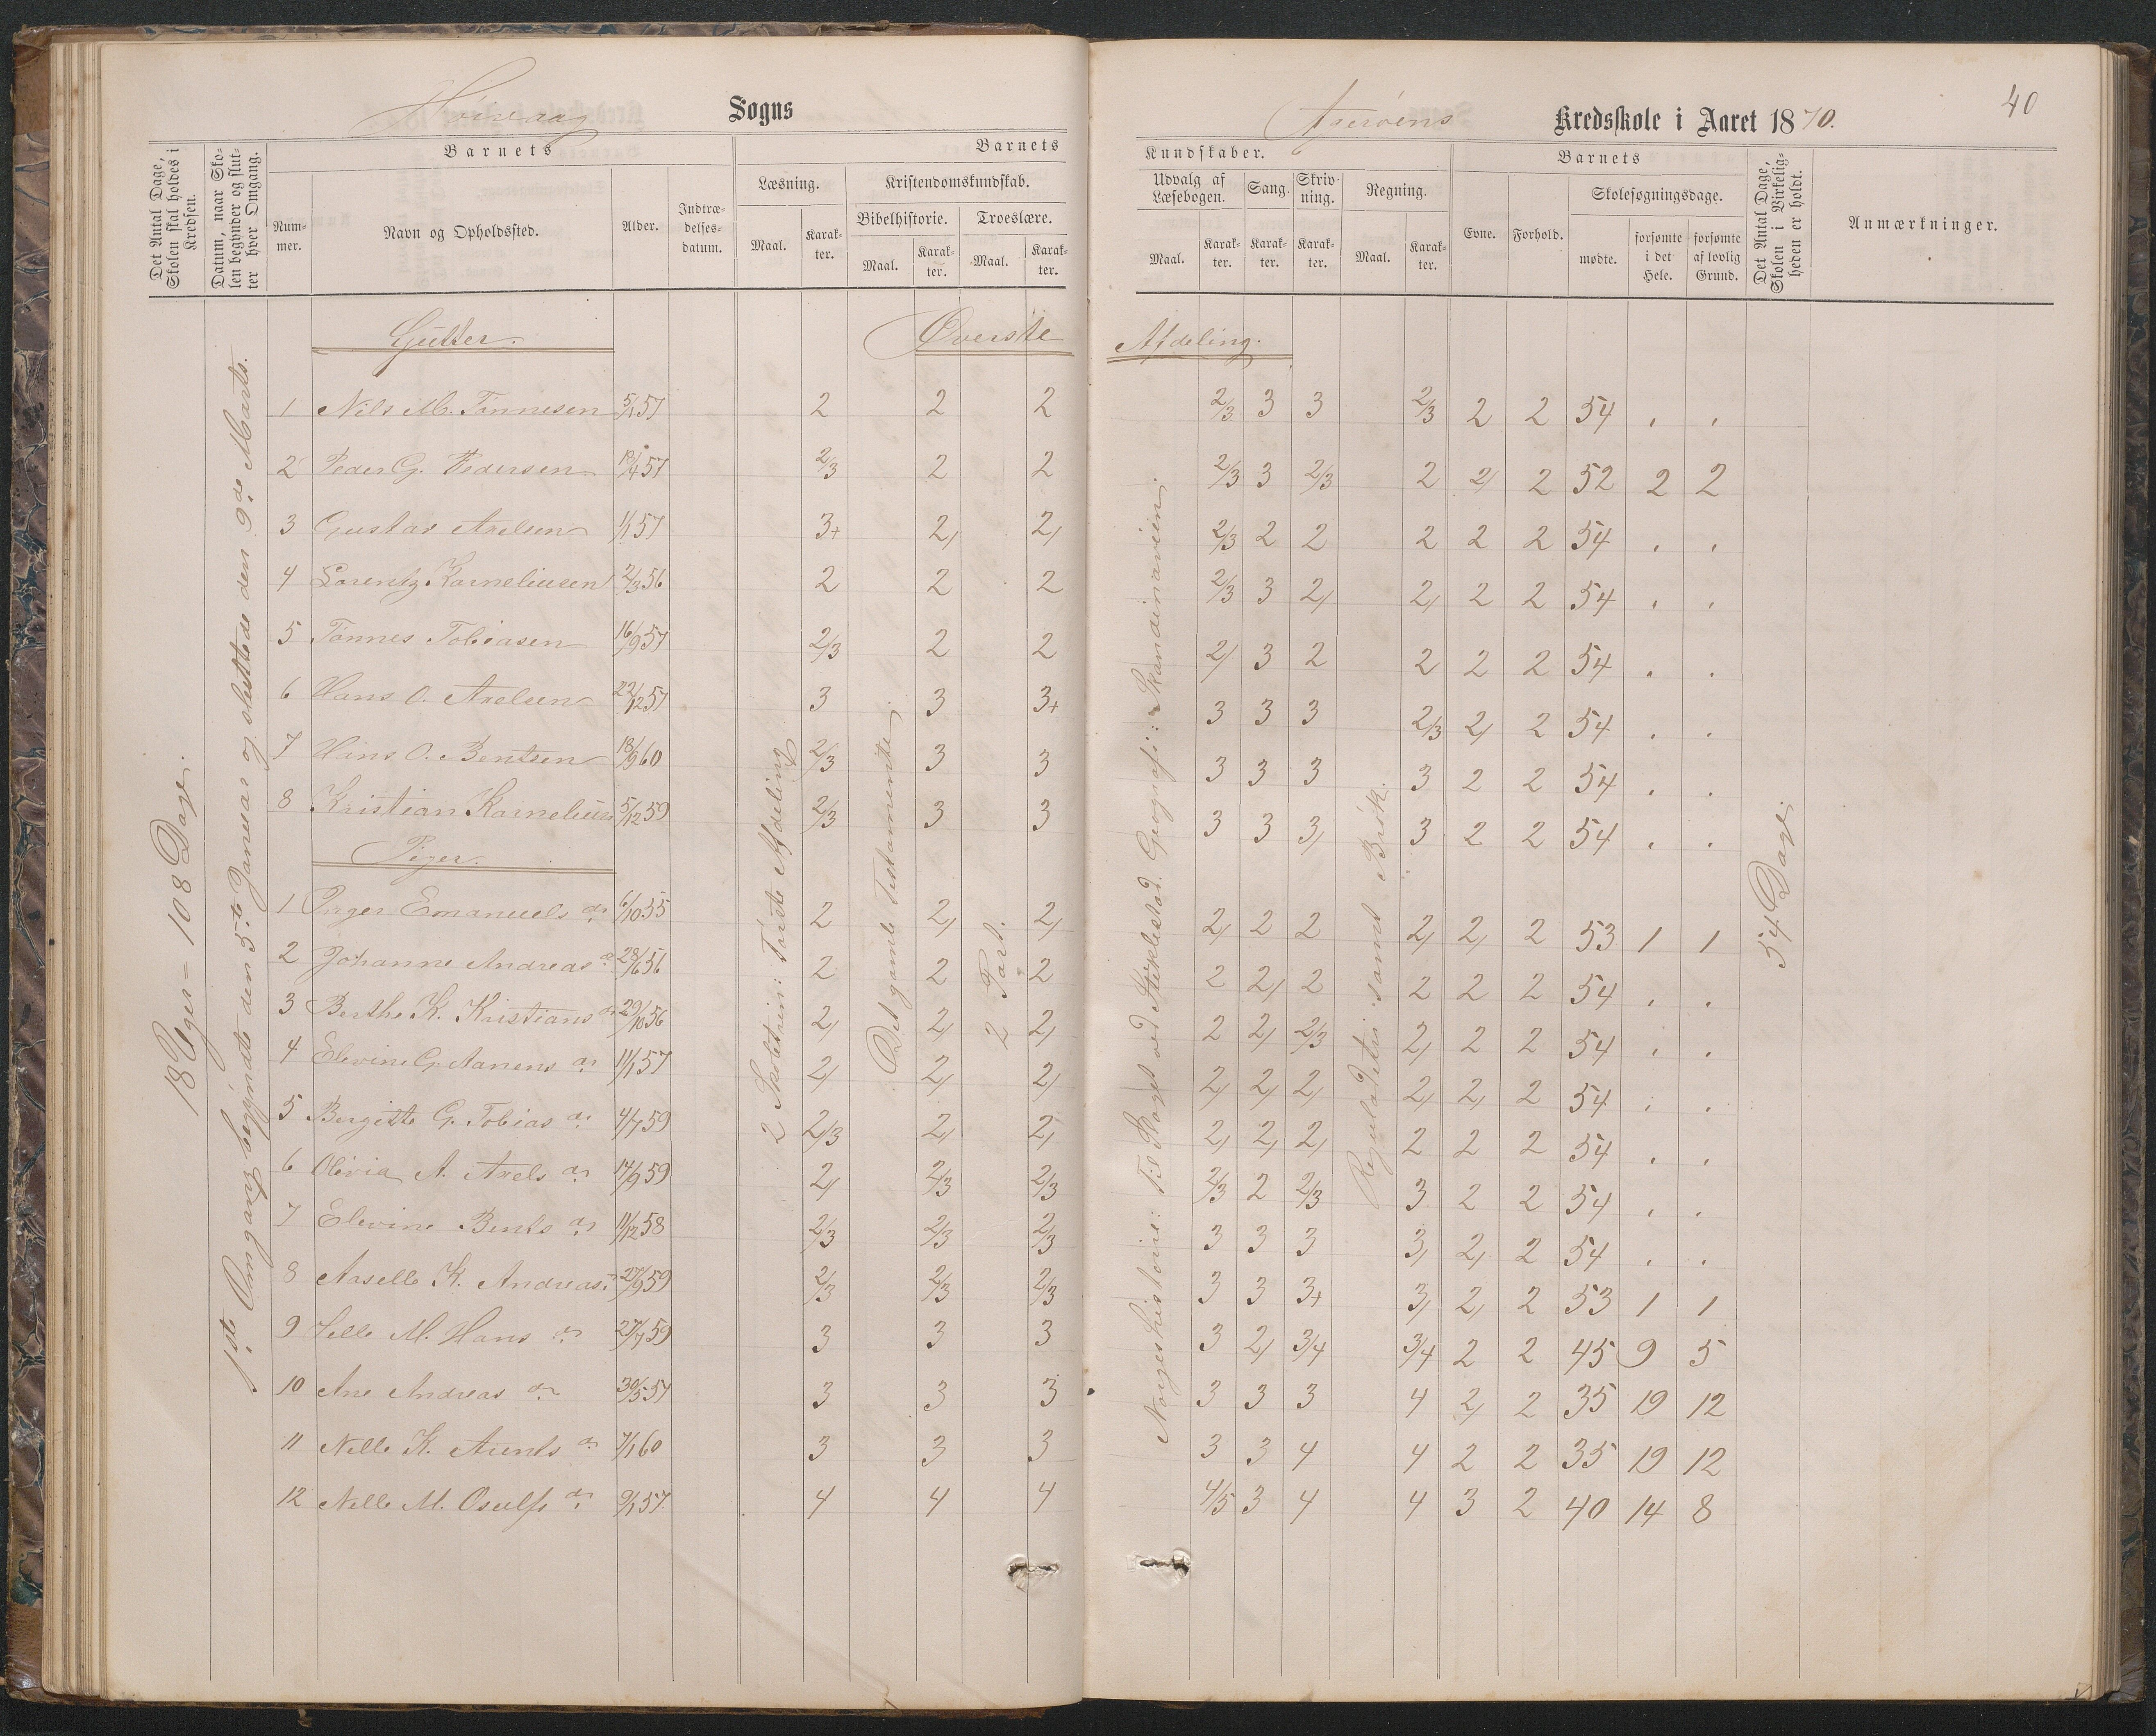 40
Høivaag Sogns
Aagerøens Kredsskole i Aaret 1870.
Det Antal Dage, Skolen skal holdes i Kredsen.
Datum, naar Skolen begynder og slutter hver Omgang.
Barnets
Nummer.
Navn og Opholdssted.
Alder.
Indtrædelsesdatum.
Barnets
Læsning.
Maal.
Karakter.
Kristendomskundskab.
Bibelhistorie.
Maal.
Karakter.
Troeslære.
Maal.
Karakter.
Kundskaber.
Udvalg af Læsebogen.
Maal.
Karakter.
Sang.
Karakter.
Skrivning.
Karakter.
Regning.
Maal.
Karakter.
Barnets
Evne.
Forhold.
Skolesøgningsdage.
mødte.
forsømte i det Hele.
forsømte af lovlig Grund.
Det Antal Dage, Skolen i Virkeligheden er holdt.
Anmærkninger.
18 Uger = 108 Dage.
1ste Omgang begyndte den 5te Januar og sluttede den 9de Marts.
2 Skoletrin: Første Afdeling
Det gamle Testamente.
2 Part.
Norgeshistorie: Til Slaget ved Stiklestad. Geografi: Skandinavien.
Reguladetri samt Brøk.
54 Dage.
Gutter.
Øverste Afdeling.
1 Nils M. Tønnesen 5/1 57 2 2 2 2/3 3 3 2/3 2 2 54 . .
2 Peder G. Pedersen 12/4 57 2/3 2 2 2/3 3 2/3 2 2/ 2 52 2 2
3 Gustav Axelsen 1/1 57 3+ 2, 2, 2/3 2 2 2 2 2 54 . .
4 Lorentz Korneliusen 2/3 56 2 2 2 2/3 3 2, 2, 2 2 54 . .
5 Tønnes Tobiasen 16/9 57 2/3 2 2 2/ 3 2 2 2 2 54 . .
6 Hans O. Axelsen 22/12 57 3 3 3+ 3 3 3 2/3 2, 2 54 . .
7 Hans O. Bentsen 18/9 60 2/3 3 3 3 3 3 3 2 2 54 . .
8 Kristian Kornelius 5/12 59 2/3 3 3 3 3 3, 3 2 2 54 . .
Piger.
1 Inger Emanuels dr 6/10 55 2 2, 2, 2, 2 2 2, 2, 2 53 1 1
2 Johanne Andreas d 28/6 56 2 2 2 2 2, 2 2 2 2 54 . .
3 Berthe K. Kristians dr 29/10 56 2, 2, 2, 2 2, 2/3 2, 2 2 54 . .
4 Elevine G. Aanens dr 11/1 57 2, 2, 2, 2, 2, 2, 2, 2, 2 54 . .
5 Bergitte G. Tobias dr 4/7 59 2/3 2, 2, 2, 2, 2, 2 2 2 54 . .
6 Olivia A. Axels dr 14/9 59 2, 2/3 2/3 2/3 2 2/3 3 2 2 54 . .
7 Elevine Bents dr 11/12 58 2/3 2/3 2/3 3 3 3 3, 2, 2 54 . .
8 Aaselle K. Andreas dr 27/9 59 2/3 2/3 2/3 3 3 3+ 3, 2, 2 53 1 1
9 M. Hans dr 27/7 59 3 3 3 3 2, 3/4 3/4 2 2 45 9 5
10 Ane Andreas dr 30/5 57 3 3 3 3 3 3 4 2, 2 35 19 12
11 Nelle K. dr 7/1 60 3 3 3 3 3 4 4 2 2 35 19 12
12 Nelle M. Osulfs dr 9/1 57 4 4 4 4/5 3 4 4 3 2 40 14 8